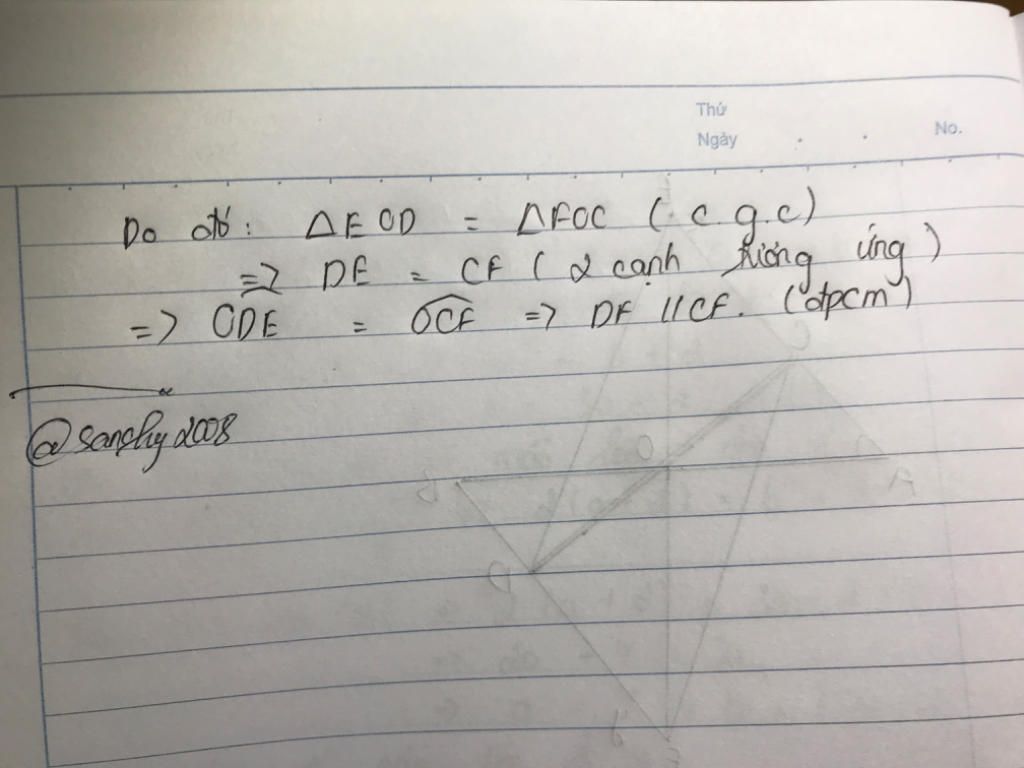 Thứ
Ngày
No.
Do đó: ΔEOD = ΔFOC (c.g.c)
=> DE = CF (2 cạnh tương ứng)
=> ODE = OCF => DE // CF. (đpcm)
@sanchy2008